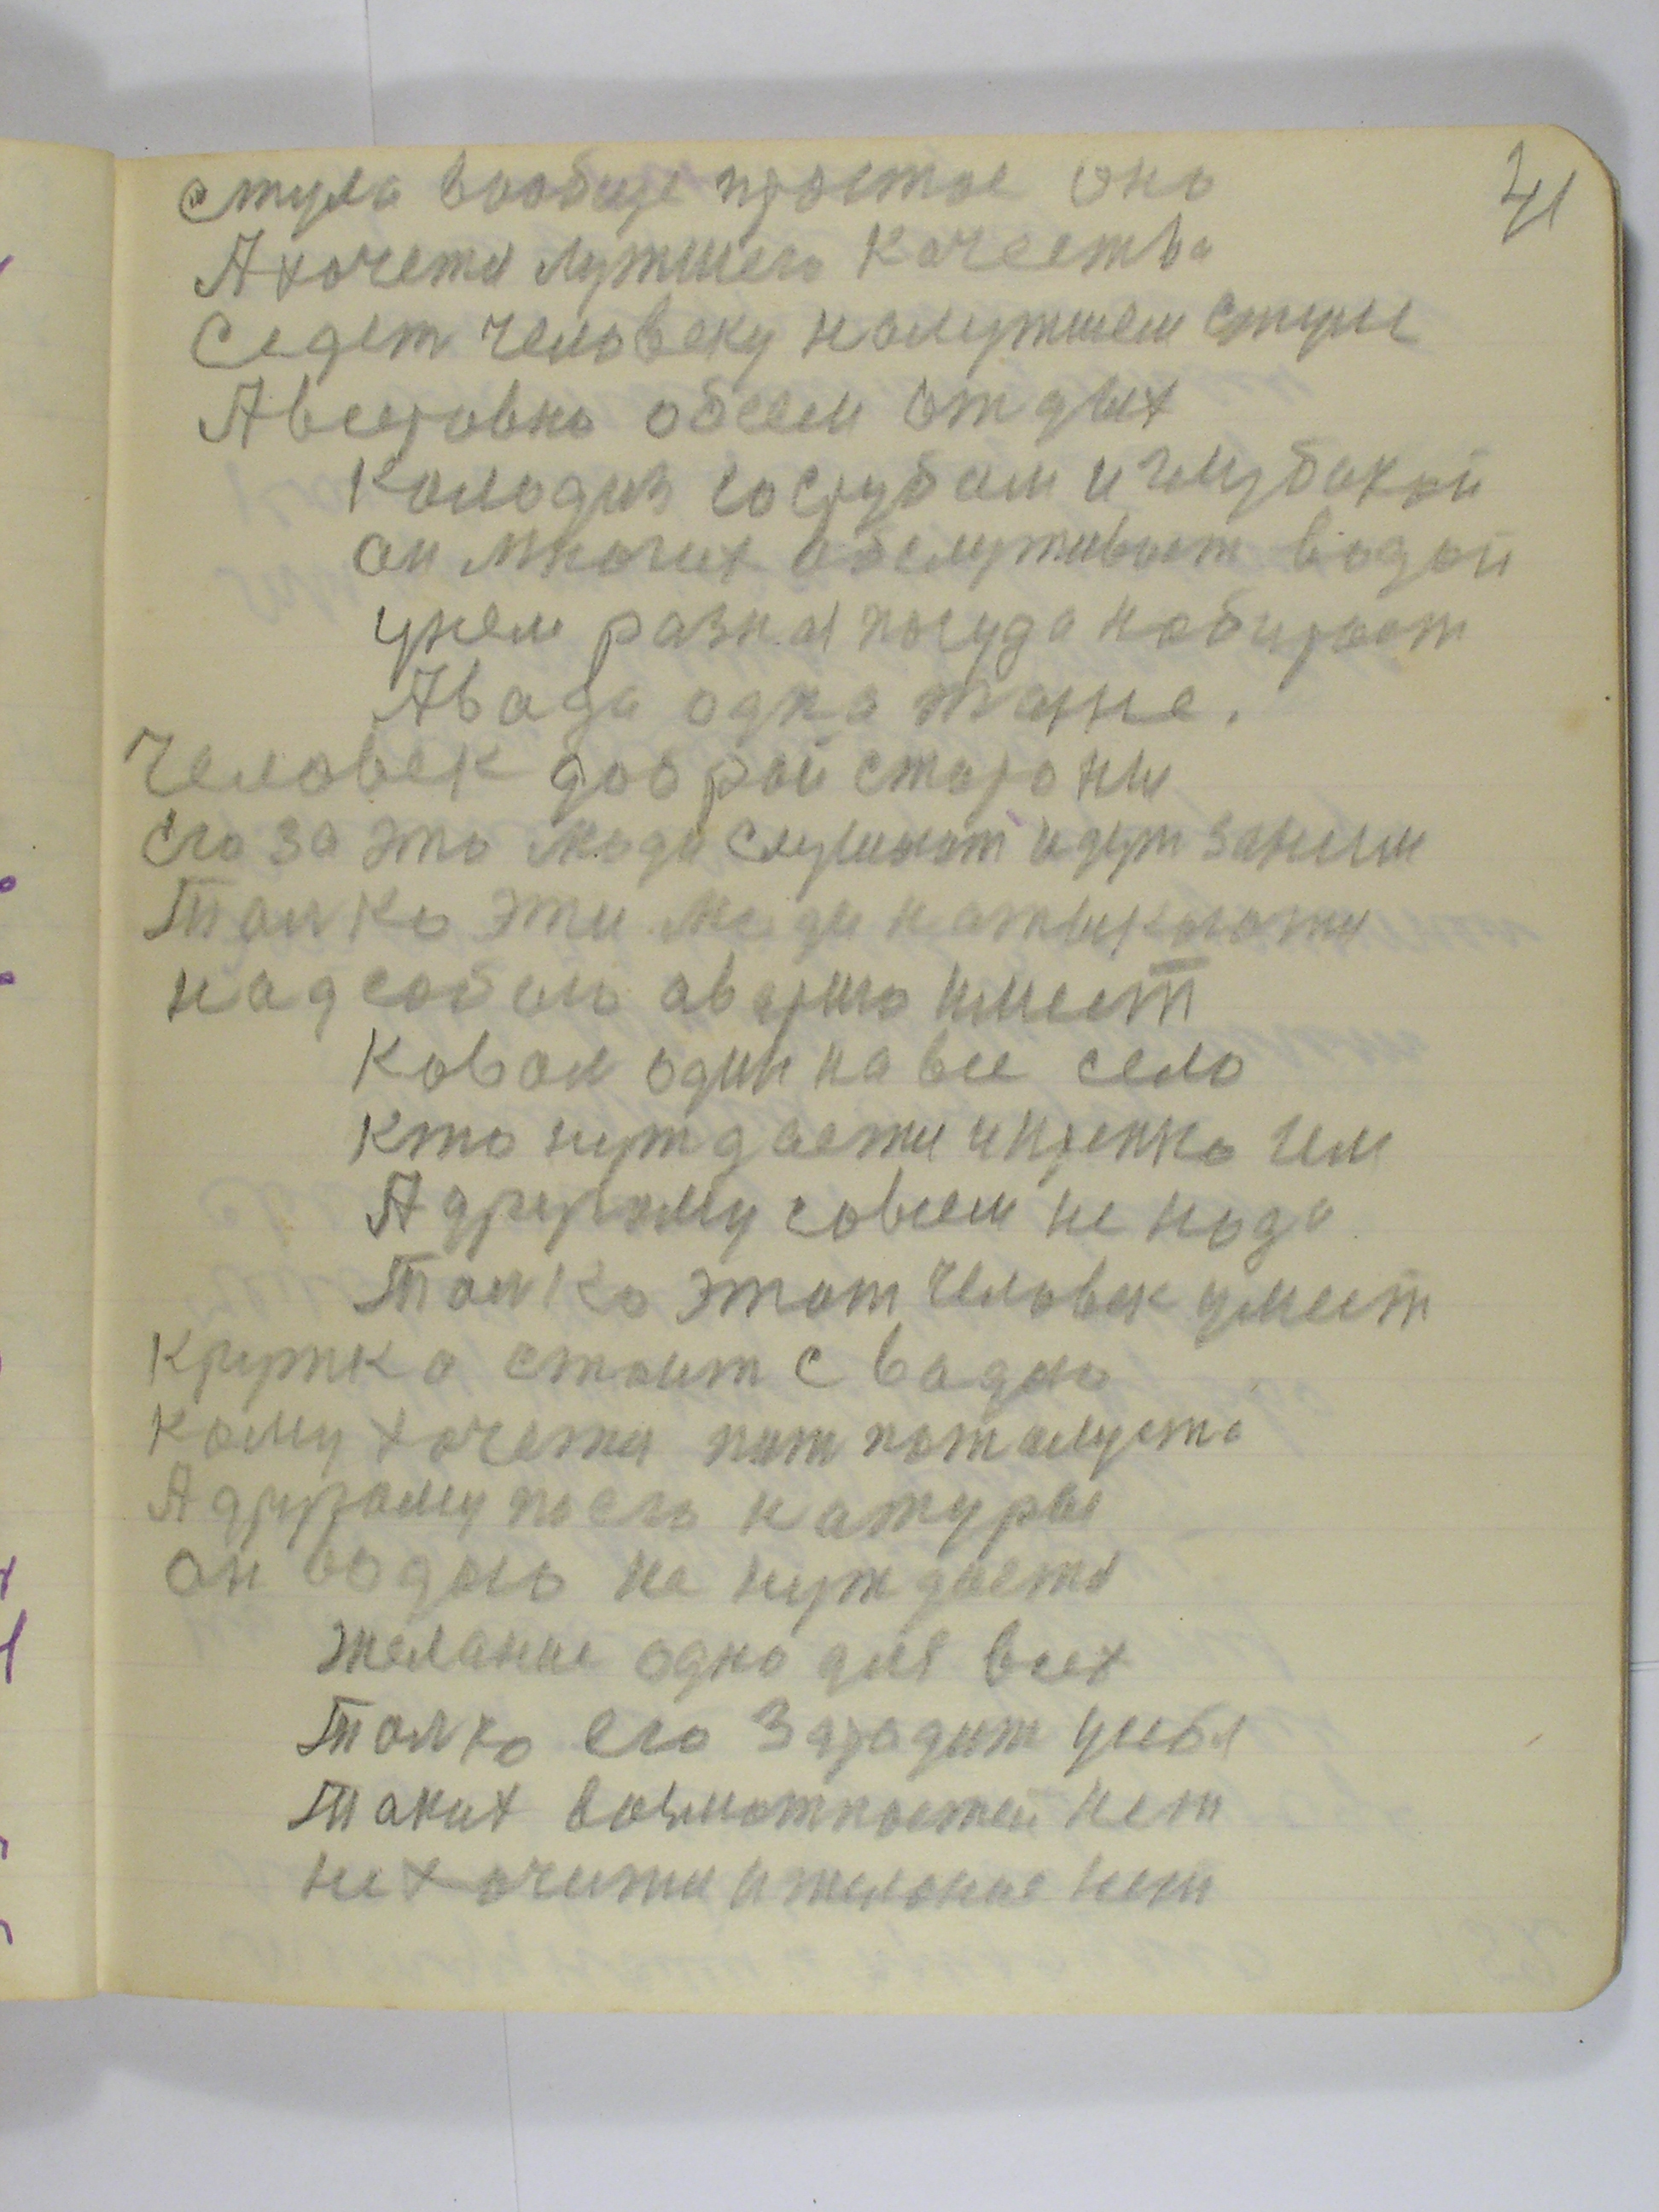 41
стула вообще простое оно
А хочетя лутшего качества
Седет человеку налутшем стуле
Авсеровно обсем отдых
Колодиз сосрубом и глубокой
он многих обслуживает водой
унем разная посуда набирает
Авада одна таже.
Человек доброй стороны
его за это люди слушают идут заним
Толко эти люди натыкаютя
надсобою аварию имеет
Ковал один на все село
Кто нуждаетя
Адругому совсем не нада
Толко этот человек умеет
Кружка стоит с вадою
Кому хочетя пит пожалуста
Адругому поего натуры
он водою не нуждаетя
Желание одно для всех
Толко его зародит усебя
Таких возможностей нет
нехочитя ижелание нет